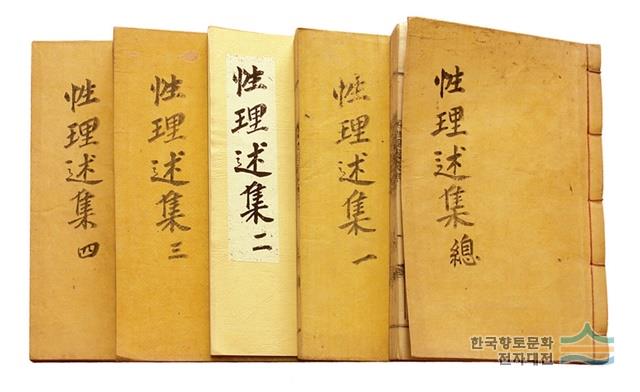 性理述集 總
性理述集 一
性理述集 二
性理述集 三
性理述集 四
한국향토문화
전자대전